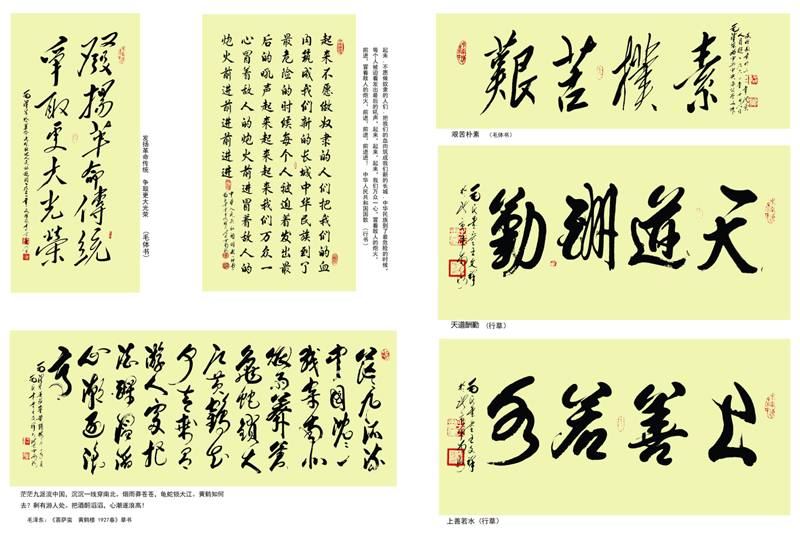 發揚革命傳統
争取更大光榮
发扬革命传统 争取更大光荣 （毛体书）
起来不愿做奴隶的人们把我们的血
肉筑成我们新的长城中华民族到了
最危险的时候每个人被迫着发出最
后的吼声起来起来起来我们万众一
心冒着敌人的炮火前进冒着敌人的
炮火前进前进前进进
起来，不愿做奴隶的人们，把我们的血肉筑成我们新的长城，中华民族到了最危险的时候，
每个人被迫着发出最后的吼声，起来，起来，起来，我们万众一心，冒着敌人的炮火，
前进，冒着敌人的炮火，前进，前进，前进进！ 中华人民共和国国歌 （行书）
茫茫九派流
中国沉沉一
线穿南北
烟雨莽苍苍
龟蛇锁大
江黄鹤知
何去剩有
游人处把
酒酹滔滔
心潮逐浪
高
茫茫九派流中国，沉沉一线穿南北，烟雨莽苍苍，龟蛇锁大江，黄鹤如何
去？剩有游人处，把酒酹滔滔，心潮逐浪高！
毛泽东：《菩萨蛮 黄鹤楼 1927春》草书
素樸苦艱
艰苦朴素 （毛体书）
天道酬勤
天道酬勤 （行草）
上善若水
上善若水（行草）